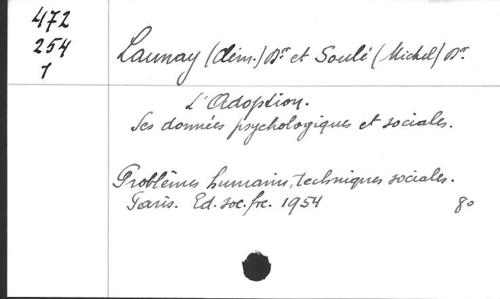 472
254
1
Launay (Clém.) Dr et Soulé (Michel) Dr.
L'Adoption.
Ses données psychologiques et sociales.
Problèmes humains, techniques sociales.
Paris. Ed. soc. frc. 1954 8o